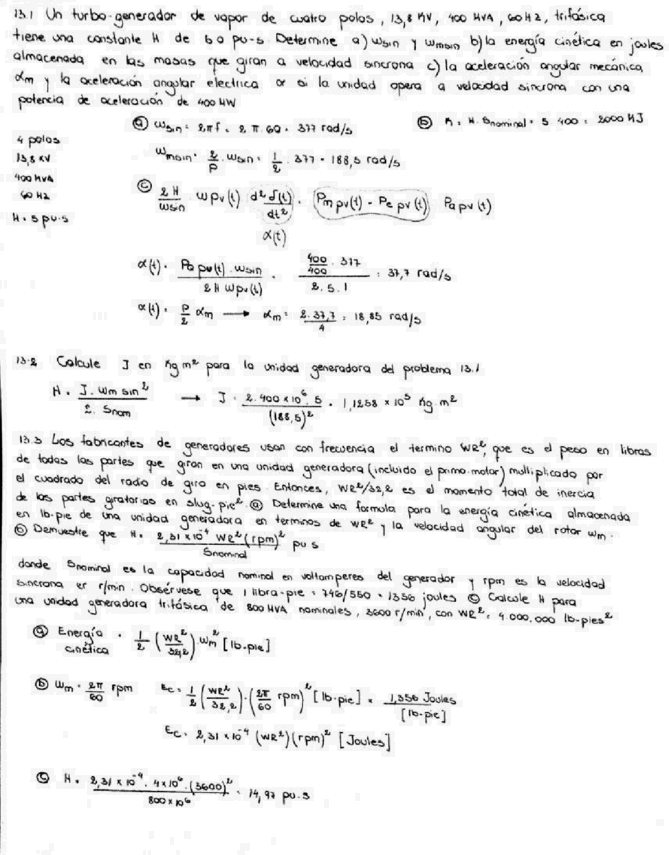 13.1 Un turbo-generador de vapor de cuatro polos, 13,8 KV, 400 MVA, 60 Hz, trifásica
tiene una constante H de 5.0 pu-s Determine a) ωsin y ωmsin b) la energía cinética en joules
almacenada en las masas que giran a velocidad sincrona c) la aceleración angular mecánica
αm y la aceleración angular electrica α si la unidad opera a velocidad sincrona con una
potencia de aceleración de 400 MW
4 polos
13,8 KV
400 MVA
60 Hz
H = 5 pu-s
ⓐ ωsin = 2πf = 2 π . 60 = 377 rad/s
ⓑ K = H . Snominal = 5 400 = 2000 MJ
ωmsin = 2/P . ωsin = 1/2 . 377 = 188,5 rad/s
ⓒ 2H/ωsin ωpu(t) d²δ(t)/dt² = Pm pu(t) - Pe pu(t) Pa pu (t)
α(t)
α(t) = Pa pu(t) . ωsin / 2H ωpu(t) = 400/400 . 377 / 2.5.1 = 37,7 rad/s
α(t) = P/2 αm → αm = 2.37,7/4 = 18,85 rad/s
13-2 Calcule J en Kg m² para la unidad generadora del problema 13.1
H = J. ωm sin² / 2. Snom → J = 2.400 x 10⁶. 5 / (188,5)² = 1,1258 x 10⁵ Kg m²
13.3 Los fabricantes de generadores usan con frecuencia el termino WR², que es el peso en libras
de todas las partes que giran en una unidad generadora (incluido el primo.motor) multiplicado por
el cuadrado del radio de giro en pies. Entonces, WR²/32,2 es el momento total de inercia
de las partes giratorias en slug-pie² ⓐ Determine una formula para la energía cinética almacenada
en lb-pie de una unidad generadora en terminos de WR² y la velocidad angular del rotor ωm.
ⓑ Demuestre que H = 2,31 x 10⁻⁴ WR² (rpm)² / Snominal pu s
donde Snominal es la capacidad nominal en voltamperes del generador y rpm es la velocidad
sincrona er r/min. Obsérvese que 1 libra-pie = 746/550 = 1356 joules ⓒ Calcule H para
una unidad generadora trifásica de 800 MVA nominales, 3600 r/min, con WR² = 4.000.000 lb-pies²
ⓐ Energía cinética = 1/2 (WR²/32,2) ωm² [lb-pie]
ⓑ ωm = 2π/60 rpm Ec = 1/2 (WR²/32,2) . (2π/60 rpm)² [lb-pie] x 1,356 Joules/[lb-pie]
Ec = 2,31 x 10⁻⁴ (WR²) (rpm)² [Joules]
ⓒ H = 2,31 x 10⁻⁴ . 4x10⁶ . (3600)² / 800 x 10⁶ = 14,97 pu.s